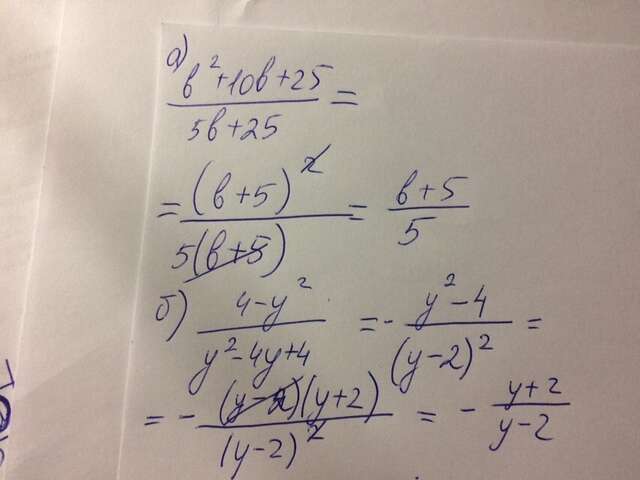 а)
(в²+10в+25)/(5в+25) =
= (в+5)²/(5(в+5)) = (в+5)/5
б) (4-y²)/(y²-4y+4) = -(y²-4)/(y-2)² =
= -((y-2)(y+2))/(y-2)² = -(y+2)/(y-2)